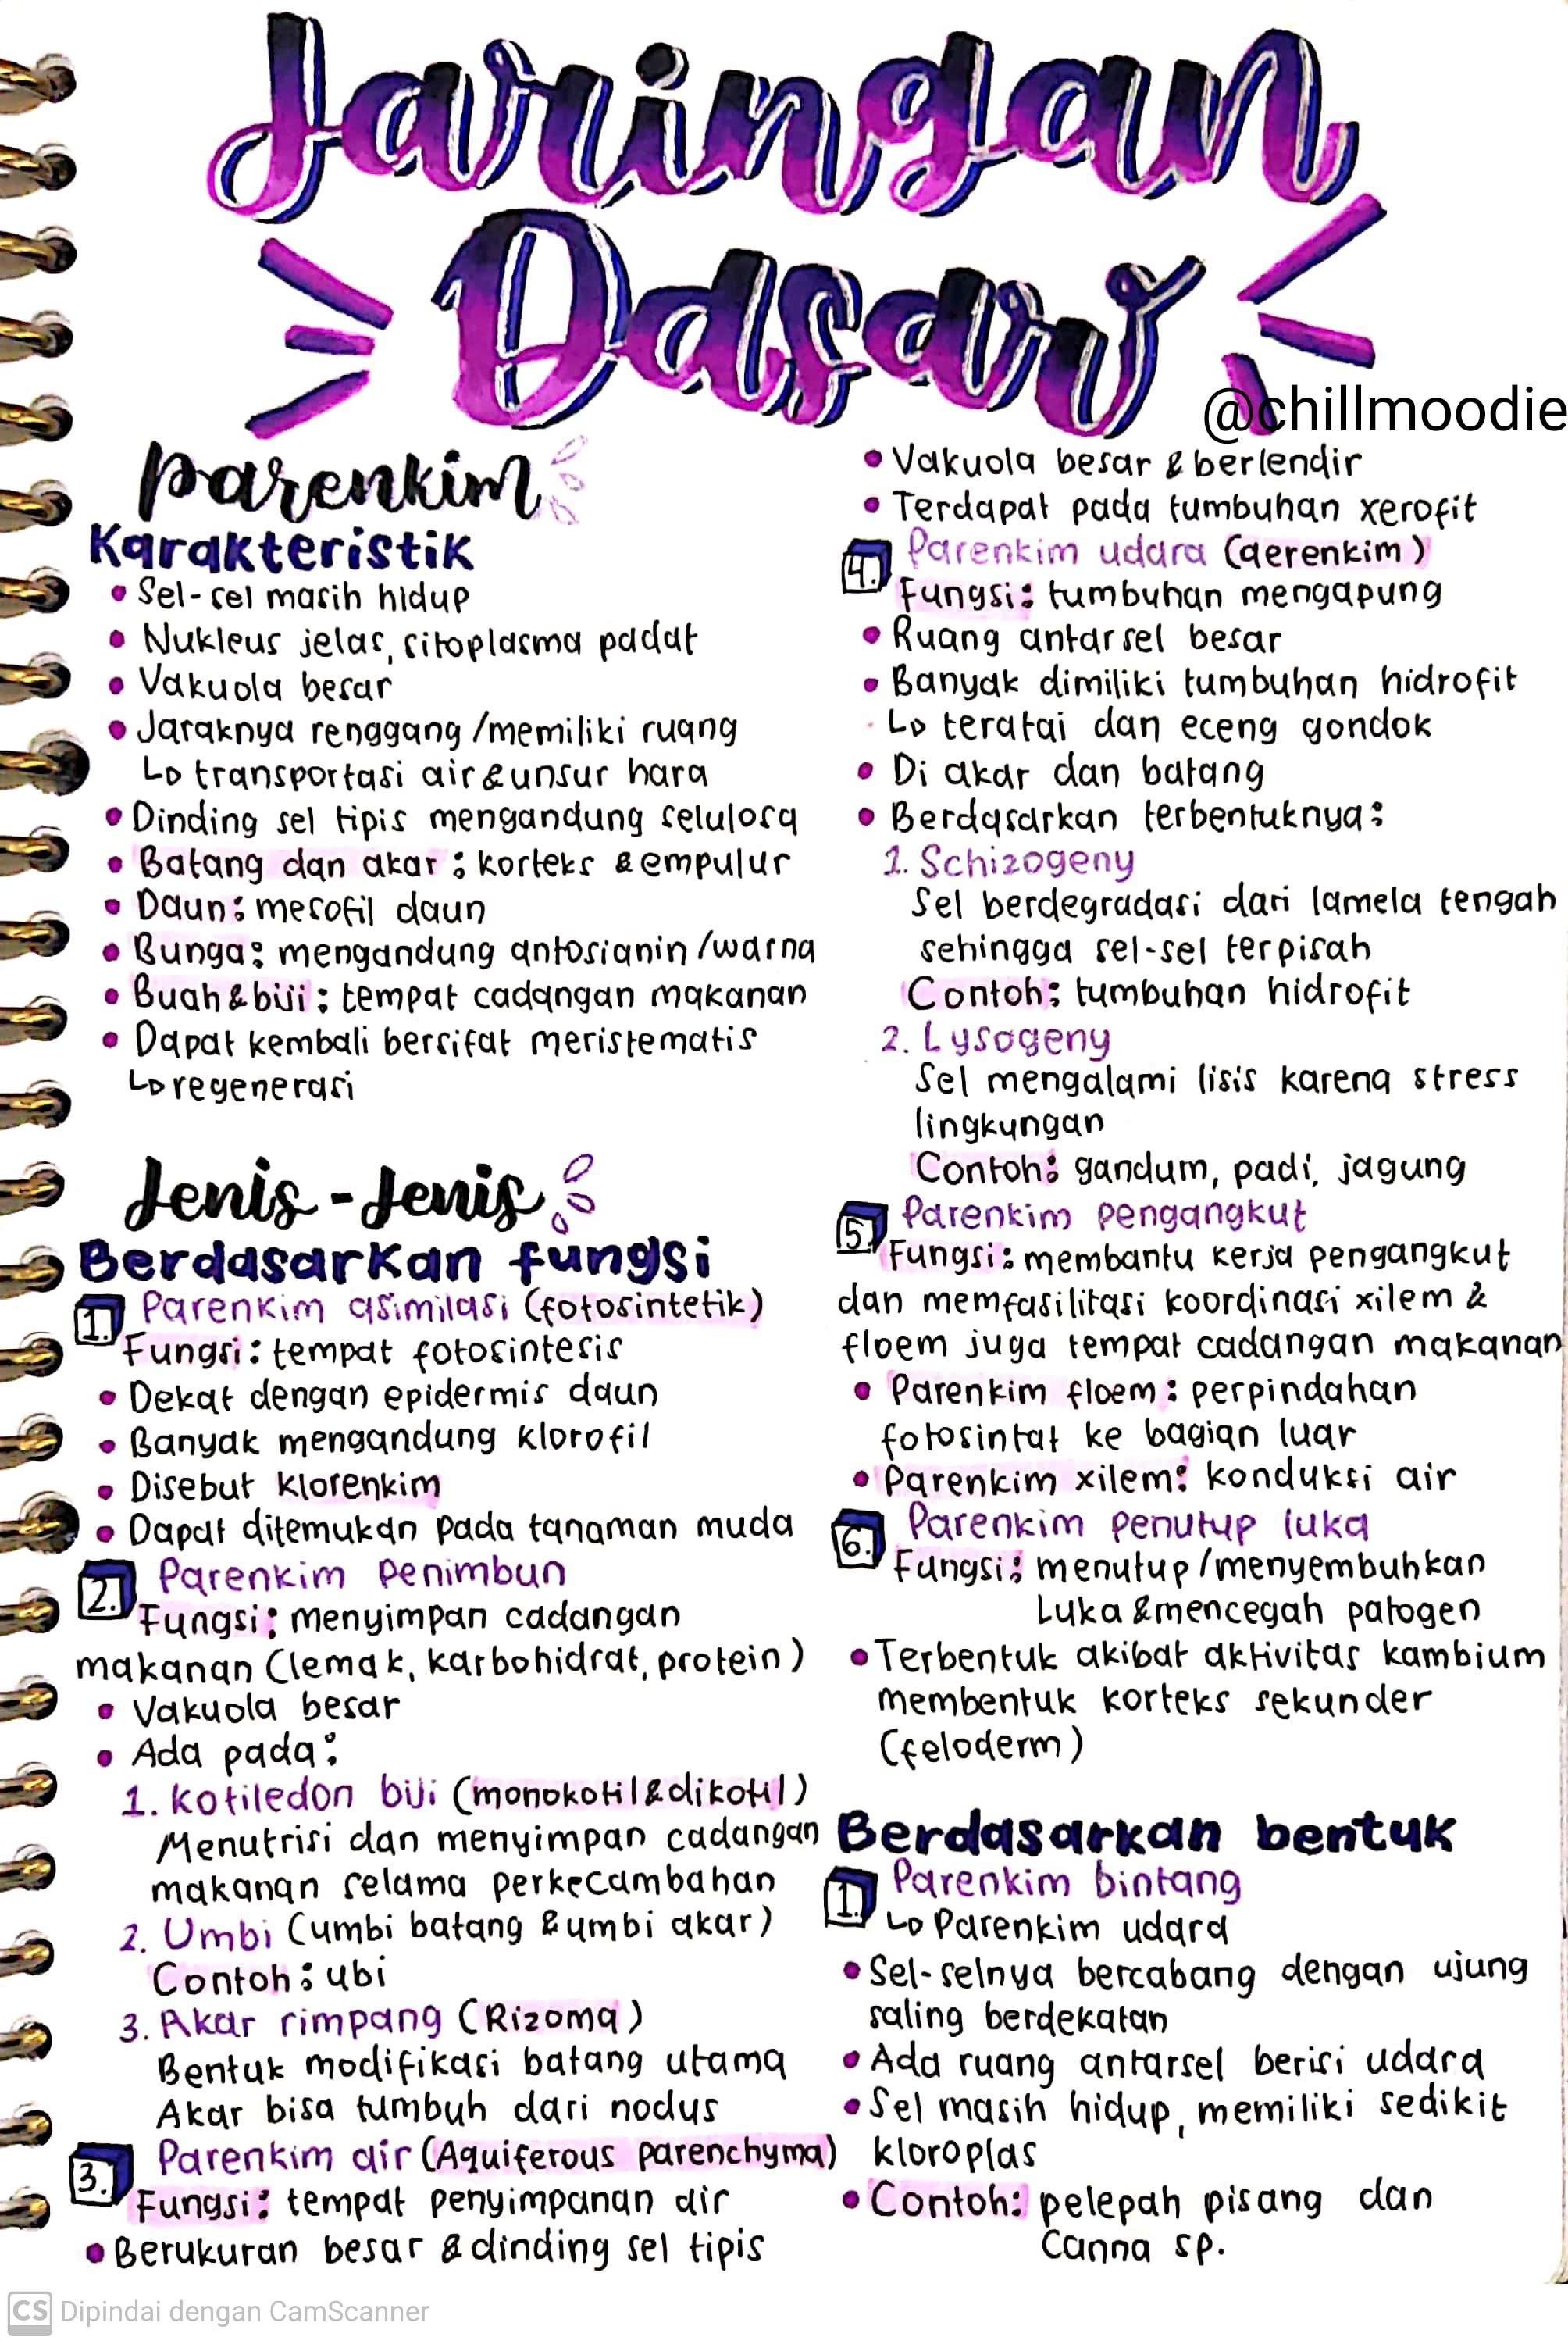 Jaringan
Dasar
@chillmoodie
parenkim
Karakteristik
• Sel-sel masih hidup
• Nukleus jelas, sitoplasma padat
• Vakuola besar
• Jaraknya renggang/memiliki ruang
↳ transportasi air & unsur hara
• Dinding sel tipis mengandung selulosa
• Batang dan akar : korteks & empulur
• Daun : mesofil daun
• Bunga : mengandung antosianin/warna
• Buah & biji : tempat cadangan makanan
• Dapat kembali bersifat meristematis
↳ regenerasi
Jenis-Jenis
Berdasarkan fungsi
1. Parenkim asimilasi (fotosintetik)
Fungsi : tempat fotosintesis
• Dekat dengan epidermis daun
• Banyak mengandung klorofil
• Disebut klorenkim
• Dapat ditemukan pada tanaman muda
2. Parenkim Penimbun
Fungsi : menyimpan cadangan
makanan (lemak, karbohidrat, protein)
• Vakuola besar
• Ada pada :
1. kotiledon biji (monokotil & dikotil)
Menutrisi dan menyimpan cadangan
makanan selama perkecambahan
2. Umbi (umbi batang & umbi akar)
Contoh : ubi
3. Akar rimpang (Rizoma)
Bentuk modifikasi batang utama
Akar bisa tumbuh dari nodus
3. Parenkim air (Aquiferous parenchyma)
Fungsi : tempat penyimpanan air
• Berukuran besar & dinding sel tipis
• Vakuola besar & berlendir
• Terdapat pada tumbuhan xerofit
4. Parenkim udara (aerenkim)
Fungsi : tumbuhan mengapung
• Ruang antarsel besar
• Banyak dimiliki tumbuhan hidrofit
↳ teratai dan eceng gondok
• Di akar dan batang
• Berdasarkan terbentuknya :
1. Schizogeny
Sel berdegradasi dari lamela tengah
sehingga sel-sel terpisah
Contoh : tumbuhan hidrofit
2. Lysogeny
Sel mengalami lisis karena stress
lingkungan
Contoh : gandum, padi, jagung
5. Parenkim pengangkut
Fungsi : membantu kerja pengangkut
dan memfasilitasi koordinasi xilem &
floem juga tempat cadangan makanan
• Parenkim floem : perpindahan
fotosintat ke bagian luar
• Parenkim xilem : konduksi air
6. Parenkim penutup luka
Fungsi : menutup/menyembuhkan
Luka & mencegah patogen
• Terbentuk akibat aktivitas kambium
membentuk korteks sekunder
(feloderm)
Berdasarkan bentuk
1. Parenkim bintang
↳ Parenkim udara
• Sel-selnya bercabang dengan ujung
saling berdekatan
• Ada ruang antarsel berisi udara
• Sel masih hidup, memiliki sedikit
kloroplas
• Contoh : pelepah pisang dan
Canna sp.
CS Dipindai dengan CamScanner